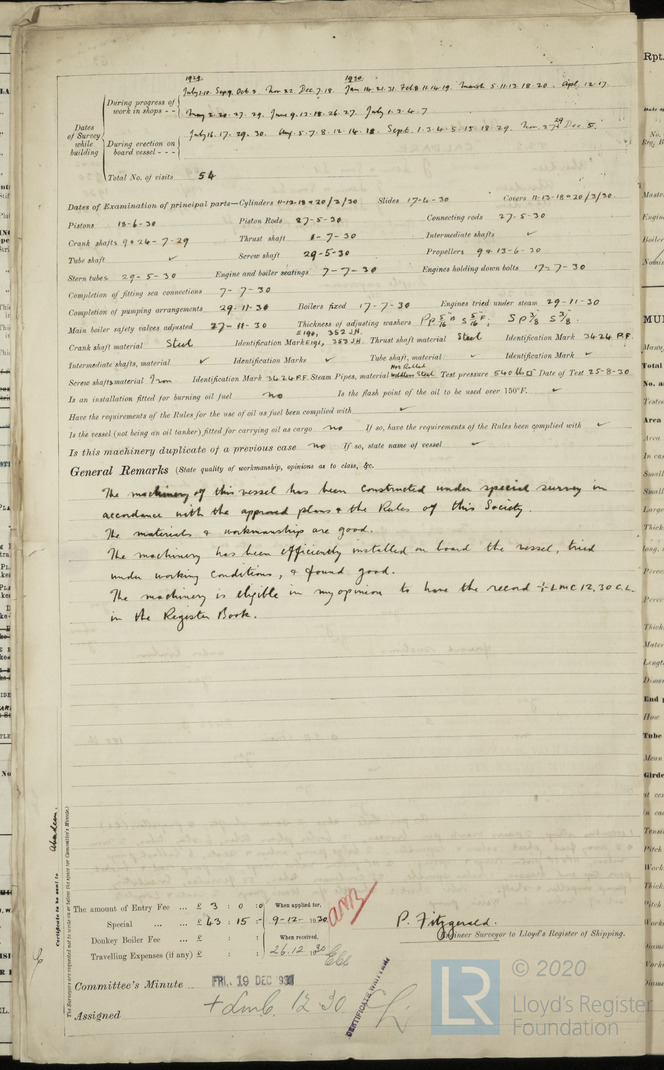 1929 1930
During progress of work in shops - -
July 1.10. Sep 9. Oct 3. Nov 22. Dec 7.18. Jan 14.21.31. Feb 8.11.14.19. March 5.11.13.18.20. Apl. 12.17.
May 2.20.27.29. June 9.13.18.26.27. July 1.3.4.7
Dates of Survey while building
During erection on board vessel - - -
July 16.17.29.30. Aug. 5.7.8.12.14.18. Sept. 1.3.4.5.15.18.29. Nov 27.29 Dec 5.
Total No. of visits 54
Dates of Examination of principal parts—Cylinders 11-13-18 & 20/3/30 Slides 17-6-30 Covers 11-13-18 & 20/3/30
Pistons 18-6-30 Piston Rods 27-5-30 Connecting rods 27-5-30
Crank shafts 9 & 24-7-29 Thrust shaft 1-7-30 Intermediate shafts ✓
Tube shaft ✓ Screw shaft 29-5-30 Propellers 9 & 13-6-30
Stern tubes 29-5-30 Engine and boiler seatings 7-7-30 Engines holding down bolts 17-7-30
Completion of fitting sea connections 7-7-30
Completion of pumping arrangements 29-11-30 Boilers fixed 17-7-30 Engines tried under steam 29-11-30
Main boiler safety valves adjusted 27-11-30 Thickness of adjusting washers P P 5/16 A S 5/16 F, S P 3/8 S 3/8.
Crank shaft material Steel Identification Mark E190, 352 J.H. E191, 353 J.H. Thrust shaft material Steel Identification Mark 3424 P.F.
Intermediate shafts, material ✓ Identification Marks ✓ Tube shaft, material ✓ Identification Mark ✓
Screw shaft material Iron Identification Mark 3424 P.F. Steam Pipes, material Hot Rolled Weldless Steel Test pressure 540 lb □" Date of Test 25-8-30
Is an installation fitted for burning oil fuel no Is the flash point of the oil to be used over 150°F. ✓
Have the requirements of the Rules for the use of oil as fuel been complied with ✓
Is the vessel (not being an oil tanker) fitted for carrying oil as cargo no If so, have the requirements of the Rules been complied with ✓
Is this machinery duplicate of a previous case no If so, state name of vessel ✓
General Remarks (State quality of workmanship, opinions as to class, &c.
The machinery of this vessel has been constructed under special survey in
accordance with the approved plans & the Rules of this Society.
The materials & workmanship are good.
The machinery has been efficiently installed on board the vessel, tried
under working conditions, & found good.
The machinery is eligible in my opinion to have the record + LMC 12,30 C.L.
in the Register Book.
Certificate to be sent to Aberdeen.
The Surveyors are requested not to write on or below the space for Committee's Minute.
The amount of Entry Fee ... £ 3 : 0 : 0 When applied for,
Special ... £ 43 : 15 : - 9-12-1930
Donkey Boiler Fee ... £ : : When received,
Travelling Expenses (if any) £ : : 26.12.1930
P. Fitzgerald.
Engineer Surveyor to Lloyd's Register of Shipping.
Committee's Minute FRI. 19 DEC 1930
Assigned + LMC 12.30 C.L.
CERTIFICATE WRITTEN
© 2020
Lloyd's Register
Foundation
LR
Rpt.